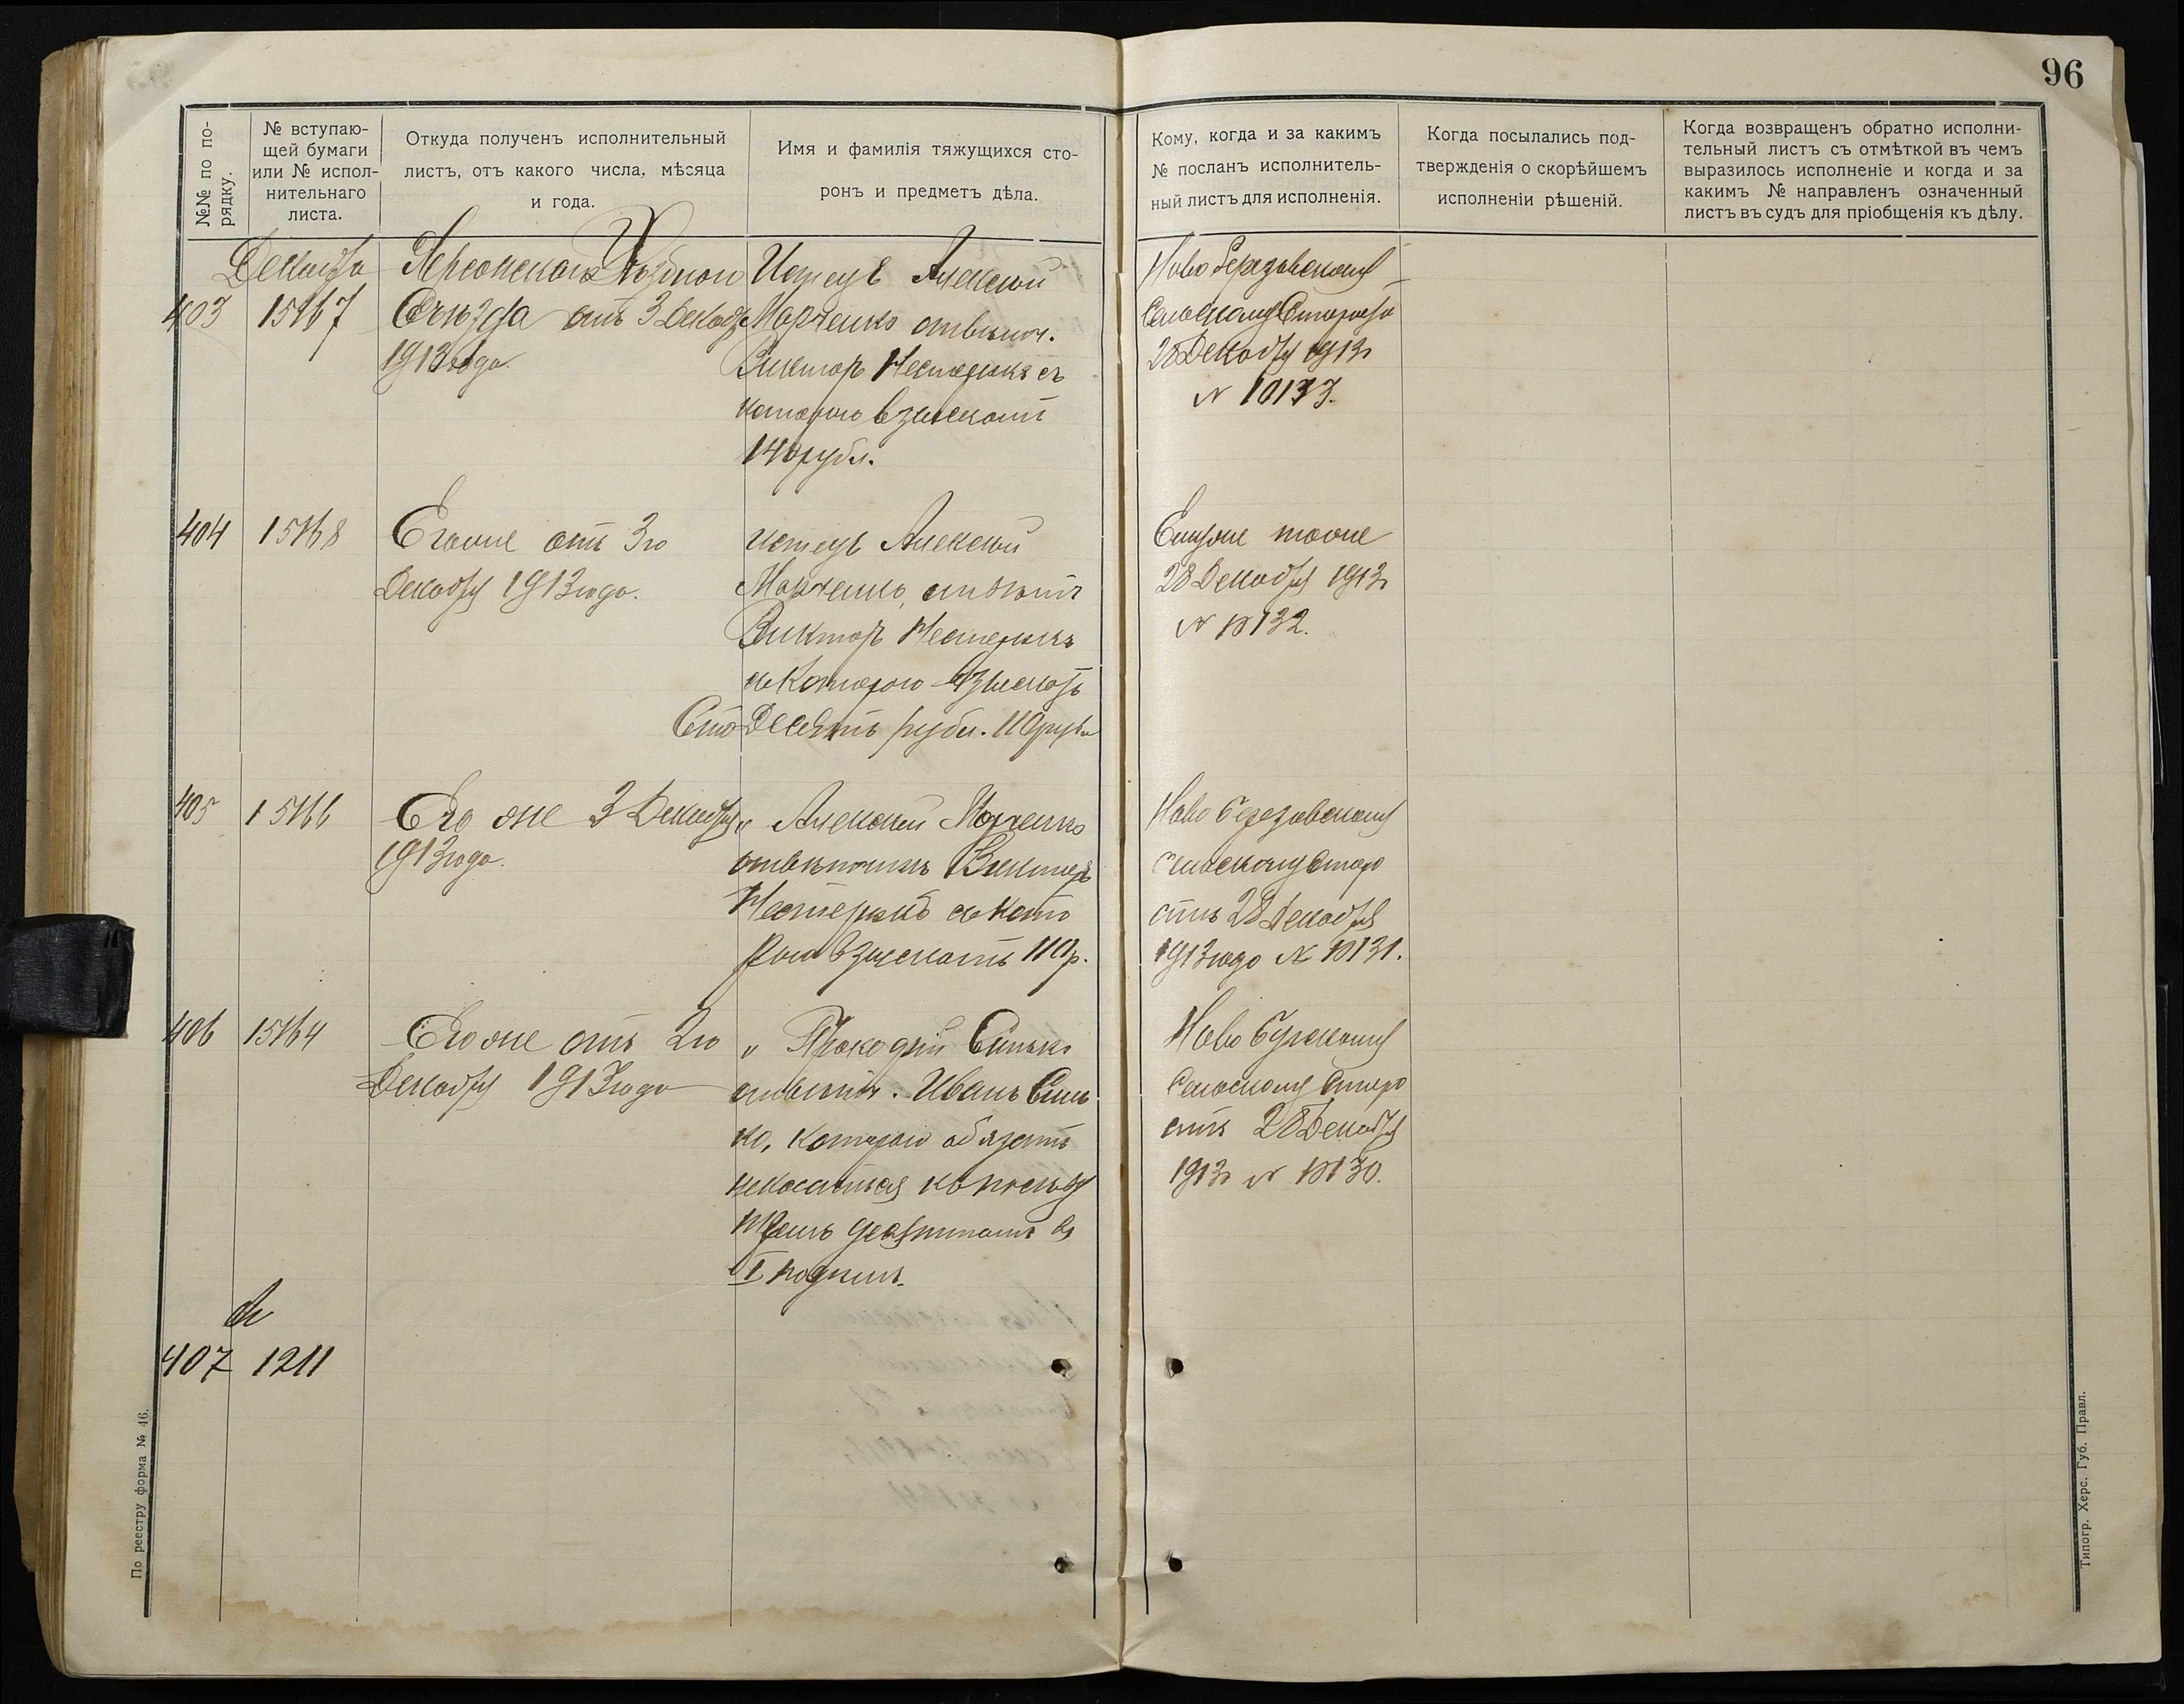 96
№№ по по-
рядку.
№ вступаю-
щей бумаги
или № испол-
нительнаго
листа.
Откуда полученъ исполнительный
листъ, отъ какого числа, мѣсяца
и года.
Имя и фамилія тяжущихся сто-
ронъ и предметъ дѣла.
Кому, когда и за какимъ
№ посланъ исполнитель-
ный листъ для исполненія.
Когда посылались под-
твержденія о скорѣйшемъ
исполненіи рѣшеній.
Когда возвращенъ обратно исполни-
тельный листъ съ отмѣткой въ чемъ
выразилось исполненіе и когда и за
какимъ № направленъ означенный
листъ въ судъ для пріобщенія къ дѣлу.
Декабря
403
15167
Херсонскаго Уѣздного
Съѣзда отъ 3 Декаб
1913 года.
Истецъ Алексѣй
Марченко отвѣтч.
Викторъ Нестерюкъ съ
котораго взыскать
140 рубл.
Ново Березовскому
Сельскому Старостѣ
28 Декабря 1913
№ 10133.
404
15168
Егоже отъ 3го
Декабря 1913 года.
истецъ Алексѣй
Марченко, отвѣтч
Викторъ Нестерюкъ
съ Котораго взыскать
Сто Десять рубл. 110 рубл
Емуже тоже
28 Декабря 1913
№ 10132.
405
15166
Его же 3 Декабря
1913 года.
" Алексѣй Марченко
отвѣтчикъ Викторъ
Нестерюкъ съ Кото
раго взыскать 110 р.
Ново Березовскому
сельскому Старо
стѣ 28 Декабря
1913 года № 10131.
406
15164
Его же отъ 2го
Декабря 1913 года
" Прокофій Синько
отвѣтч. Иванъ Синь
ко, котораго обязать
Сельскому Старо
стѣ 28 Декабря
1913 № 10130.
407
1211
По реестру форма № 46.
Типогр. Херс. Губ. Правл.